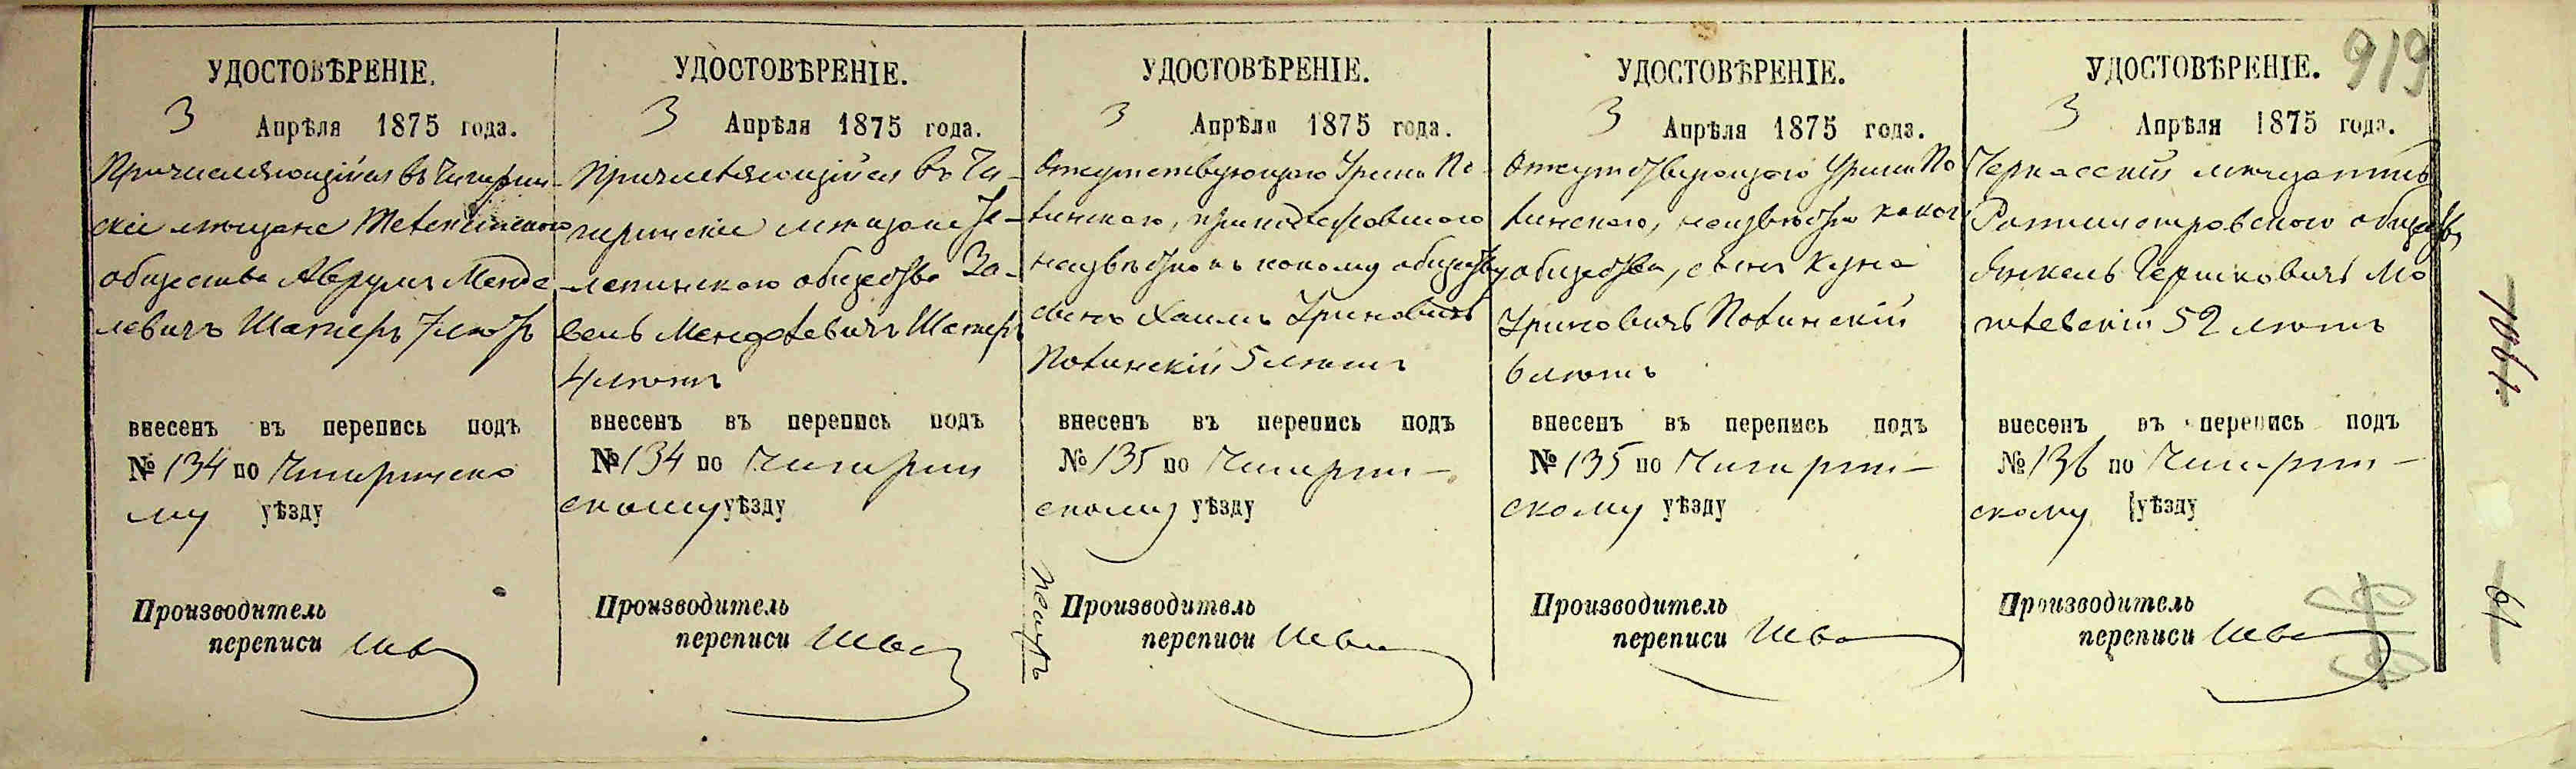 919
УДОСТОВѢРЕНІЕ.
3 Апрѣля 1875 года.
Причисляющійся въ Чигирин-
скіе мѣщане
общества Аврумъ Менде-
левичъ Шаперъ 7 лѣтъ
внесенъ въ перепись подъ
№ 134 по Чигиринско
му уѣзду
Производитель
переписи
УДОСТОВѢРЕНІЕ.
3 Апрѣля 1875 года.
Причисляющійся въ Чи-
гиринскіе мѣщане
общества
Менделевичъ Шаперъ
4 лѣтъ
внесенъ въ перепись подъ
№ 134 по Чигирин
скому уѣзду
Производитель
переписи
УДОСТОВѢРЕНІЕ.
3 Апрѣля 1875 года.
Отсутствующаго По-
линскаго,
неизвѣстно къ какому обществу
сынъ Хаимъ
Полинскій 5 лѣтъ
внесенъ въ перепись подъ
№ 135 по Чигирин-
скому уѣзду
Производитель
переписи
УДОСТОВѢРЕНІЕ.
3 Апрѣля 1875 года.
Отсутствующаго По
линскаго, неизвѣстно какого
общества, сынъ
Полинскій
6 лѣтъ
внесенъ въ перепись подъ
№ 135 по Чигирин-
скому уѣзду
Производитель
переписи
УДОСТОВѢРЕНІЕ.
3 Апрѣля 1875 года.
Черкасскій мѣщанинъ
Ротмистровскаго общества
Янкель Гершковичъ
52 лѣтъ
внесенъ въ перепись подъ
№ 136 по Чигирин-
скому уѣзду
Производитель
переписи